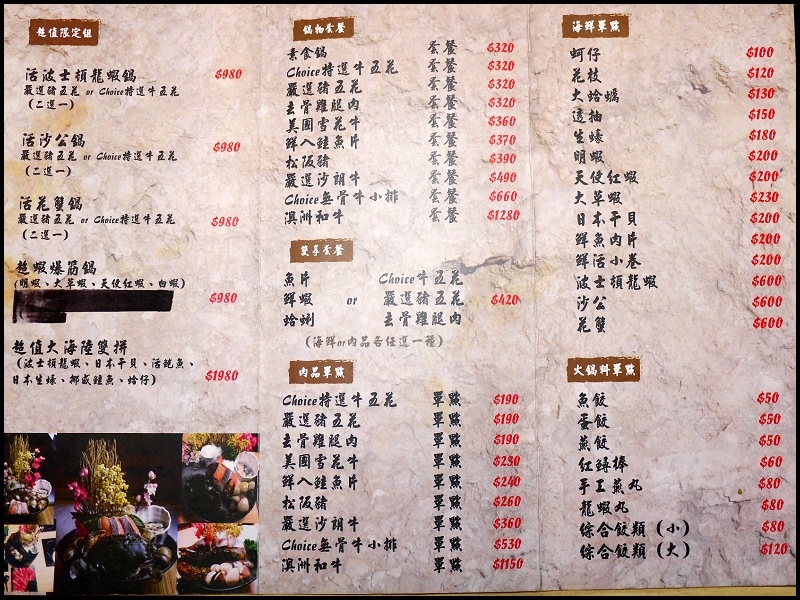 超值限定組
活波士頓龍蝦鍋 $980
嚴選豬五花 or Choice特選牛五花
(二選一)
活沙公鍋 $980
嚴選豬五花 or Choice特選牛五花
(二選一)
活花蟹鍋
嚴選豬五花 or Choice特選牛五花 $980
(二選一)
超蝦爆筋鍋
(明蝦、大草蝦、天使紅蝦、白蝦)
$980
超值大海陸雙拼
(波士頓龍蝦、日本干貝、活鮑魚、
日本生蠔、挪威鮭魚、蛤仔) $1980
鍋物套餐
素食鍋 套餐 $320
Choice特選牛五花 套餐 $320
嚴選豬五花 套餐 $320
去骨雞腿肉 套餐 $320
美國雪花牛 套餐 $360
鮮入鮭魚片 套餐 $370
松阪豬 套餐 $390
嚴選沙朗牛 套餐 $490
Choice無骨牛小排 套餐 $660
澳洲和牛 套餐 $1280
雙享套餐
魚片 Choice牛五花
鮮蝦 or 嚴選豬五花 $420
蛤蜊 去骨雞腿肉
(海鮮or肉品各任選一種)
肉品單點
Choice特選牛五花 單點 $190
嚴選豬五花 單點 $190
去骨雞腿肉 單點 $190
美國雪花牛 單點 $230
鮮入鮭魚片 單點 $240
松阪豬 單點 $260
嚴選沙朗牛 單點 $360
Choice無骨牛小排 單點 $530
澳洲和牛 單點 $1150
海鮮單點
蚵仔 $100
花枝 $120
大蛤蠣 $130
透抽 $150
生蠔 $180
明蝦 $200
天使紅蝦 $200
大草蝦 $230
日本干貝 $200
鮮魚肉片 $200
鮮活小卷 $200
波士頓龍蝦 $600
沙公 $600
花蟹 $600
火鍋料單點
魚餃 $50
蛋餃 $50
燕餃 $50
紅蟳棒 $60
手工燕丸 $80
龍蝦丸 $80
綜合餃類(小) $80
綜合餃類(大) $120